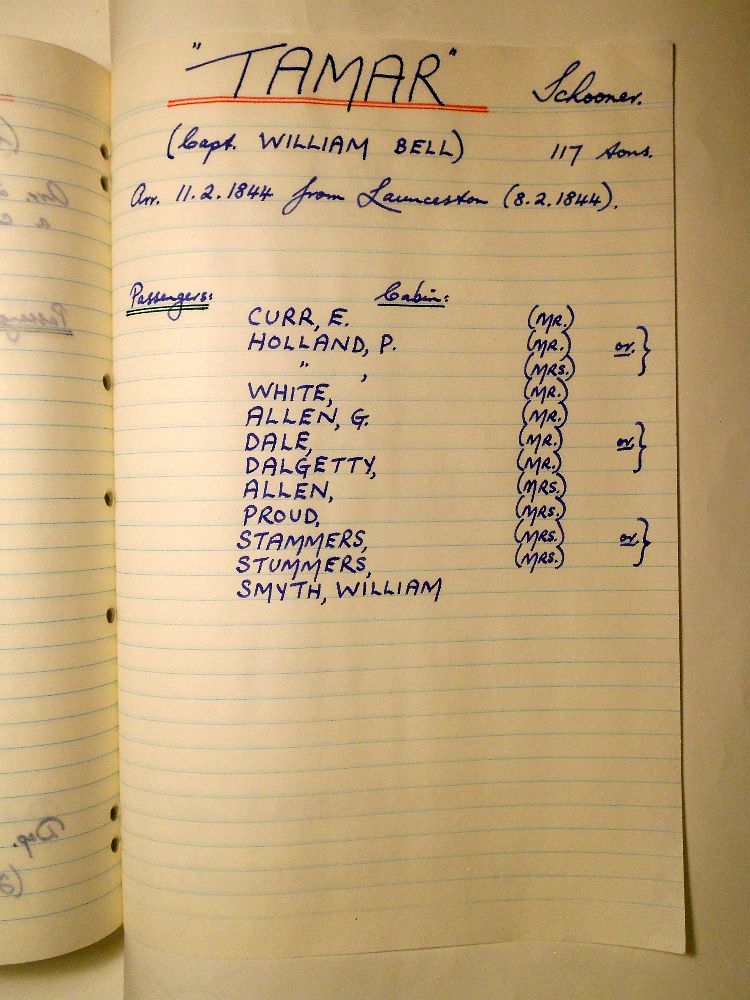 "TAMAR" Schooner.
(Capt. WILLIAM BELL) 117 tons.
Arr. 11.2.1844 from Launceston (8.2.1844).
Passengers: Cabin:
CURR, E. (MR.)
HOLLAND, P. (MR.) or }
" , (MRS.)
WHITE, (MR.)
ALLEN, G. (MR.)
DALE, (MR.) or }
DALGETTY, (MR.)
ALLEN, (MRS.)
PROUD, (MRS.)
STAMMERS, (MRS.) or }
STUMMERS, (MRS.)
SMYTH, WILLIAM